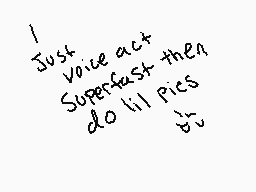 I
Just
voice act
superfast then
do lil pics